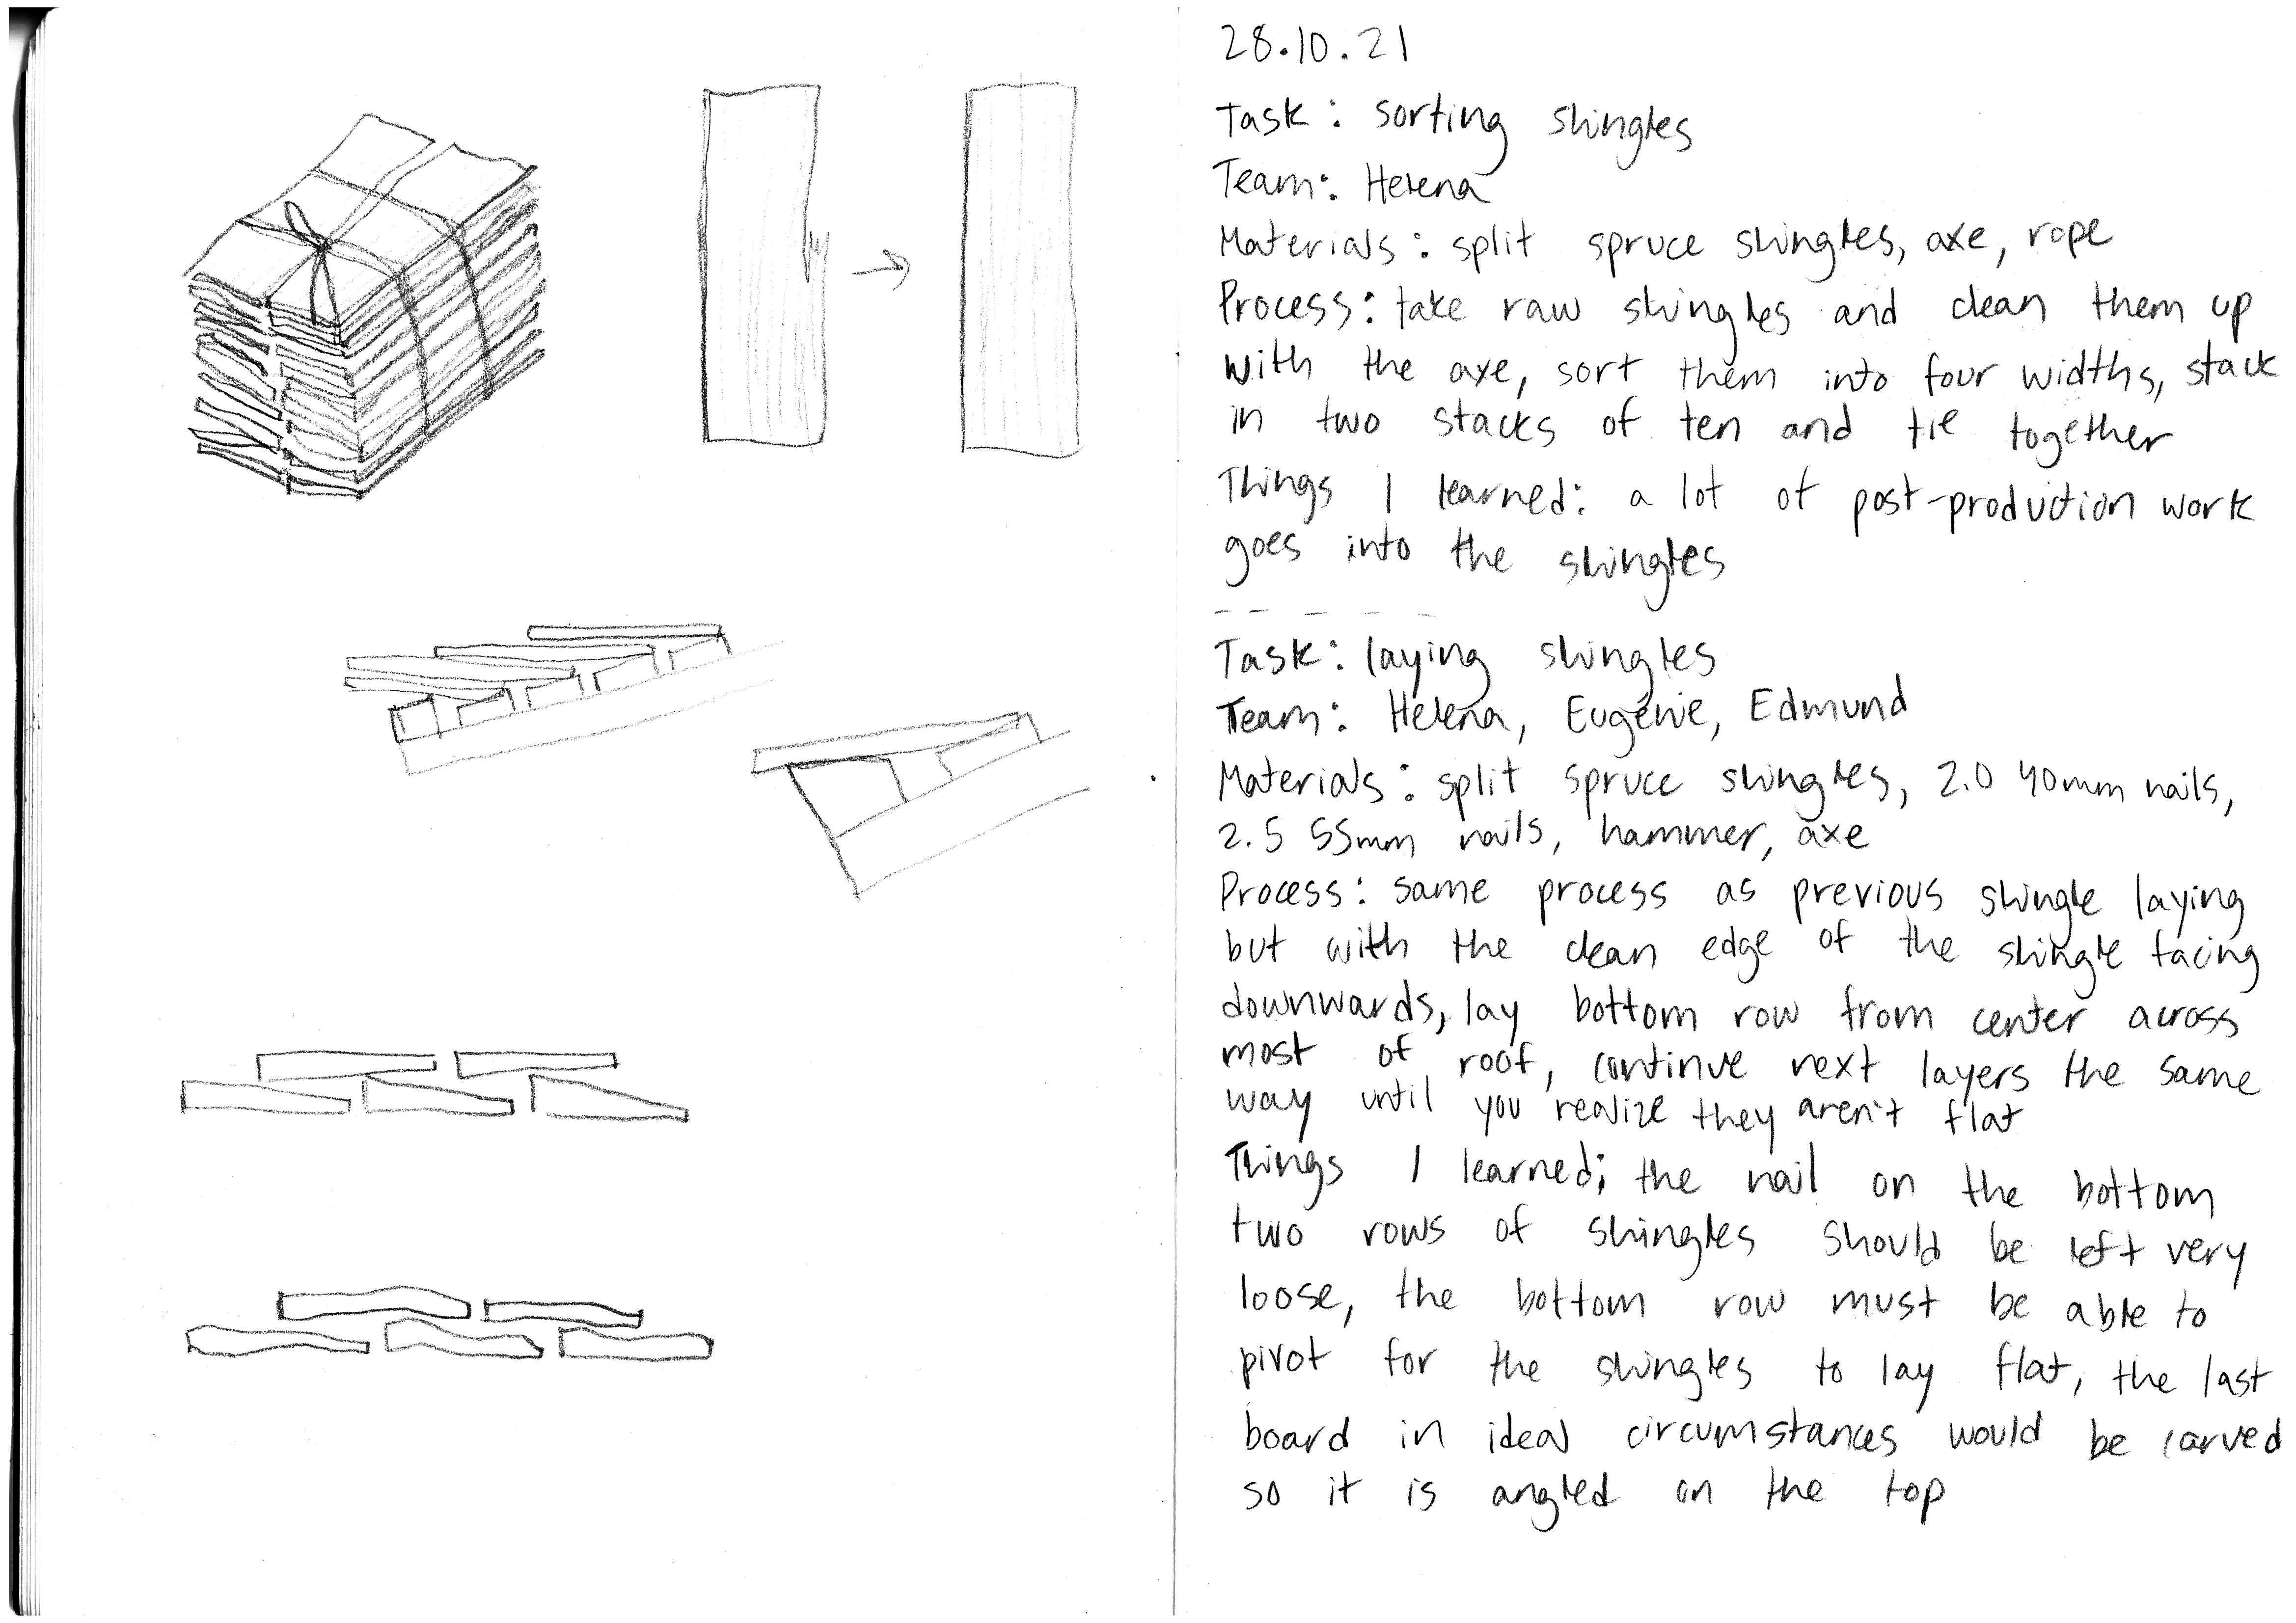 28.10.21
Task: sorting shingles
Team: Helena
Materials: split spruce shingles, axe, rope
Process: take raw shingles and clean them up
with the axe, sort them into four widths, stack
in two stacks of ten and tie together
Things I learned: a lot of post-production work
goes into the shingles
Task: laying shingles
Team: Helena, Eugénie, Edmund
Materials: split spruce shingles, 2.0 40mm nails,
2.5 55mm nails, hammer, axe
Process: same process as previous shingle laying
but with the clean edge of the shingle facing
downwards, lay bottom row from center across
most of roof, continue next layers the same
way until you realize they aren't flat
Things I learned: the nail on the bottom
two rows of shingles should be left very
loose, the bottom row must be able to
pivot for the shingles to lay flat, the last
board in ideal circumstances would be carved
so it is angled on the top